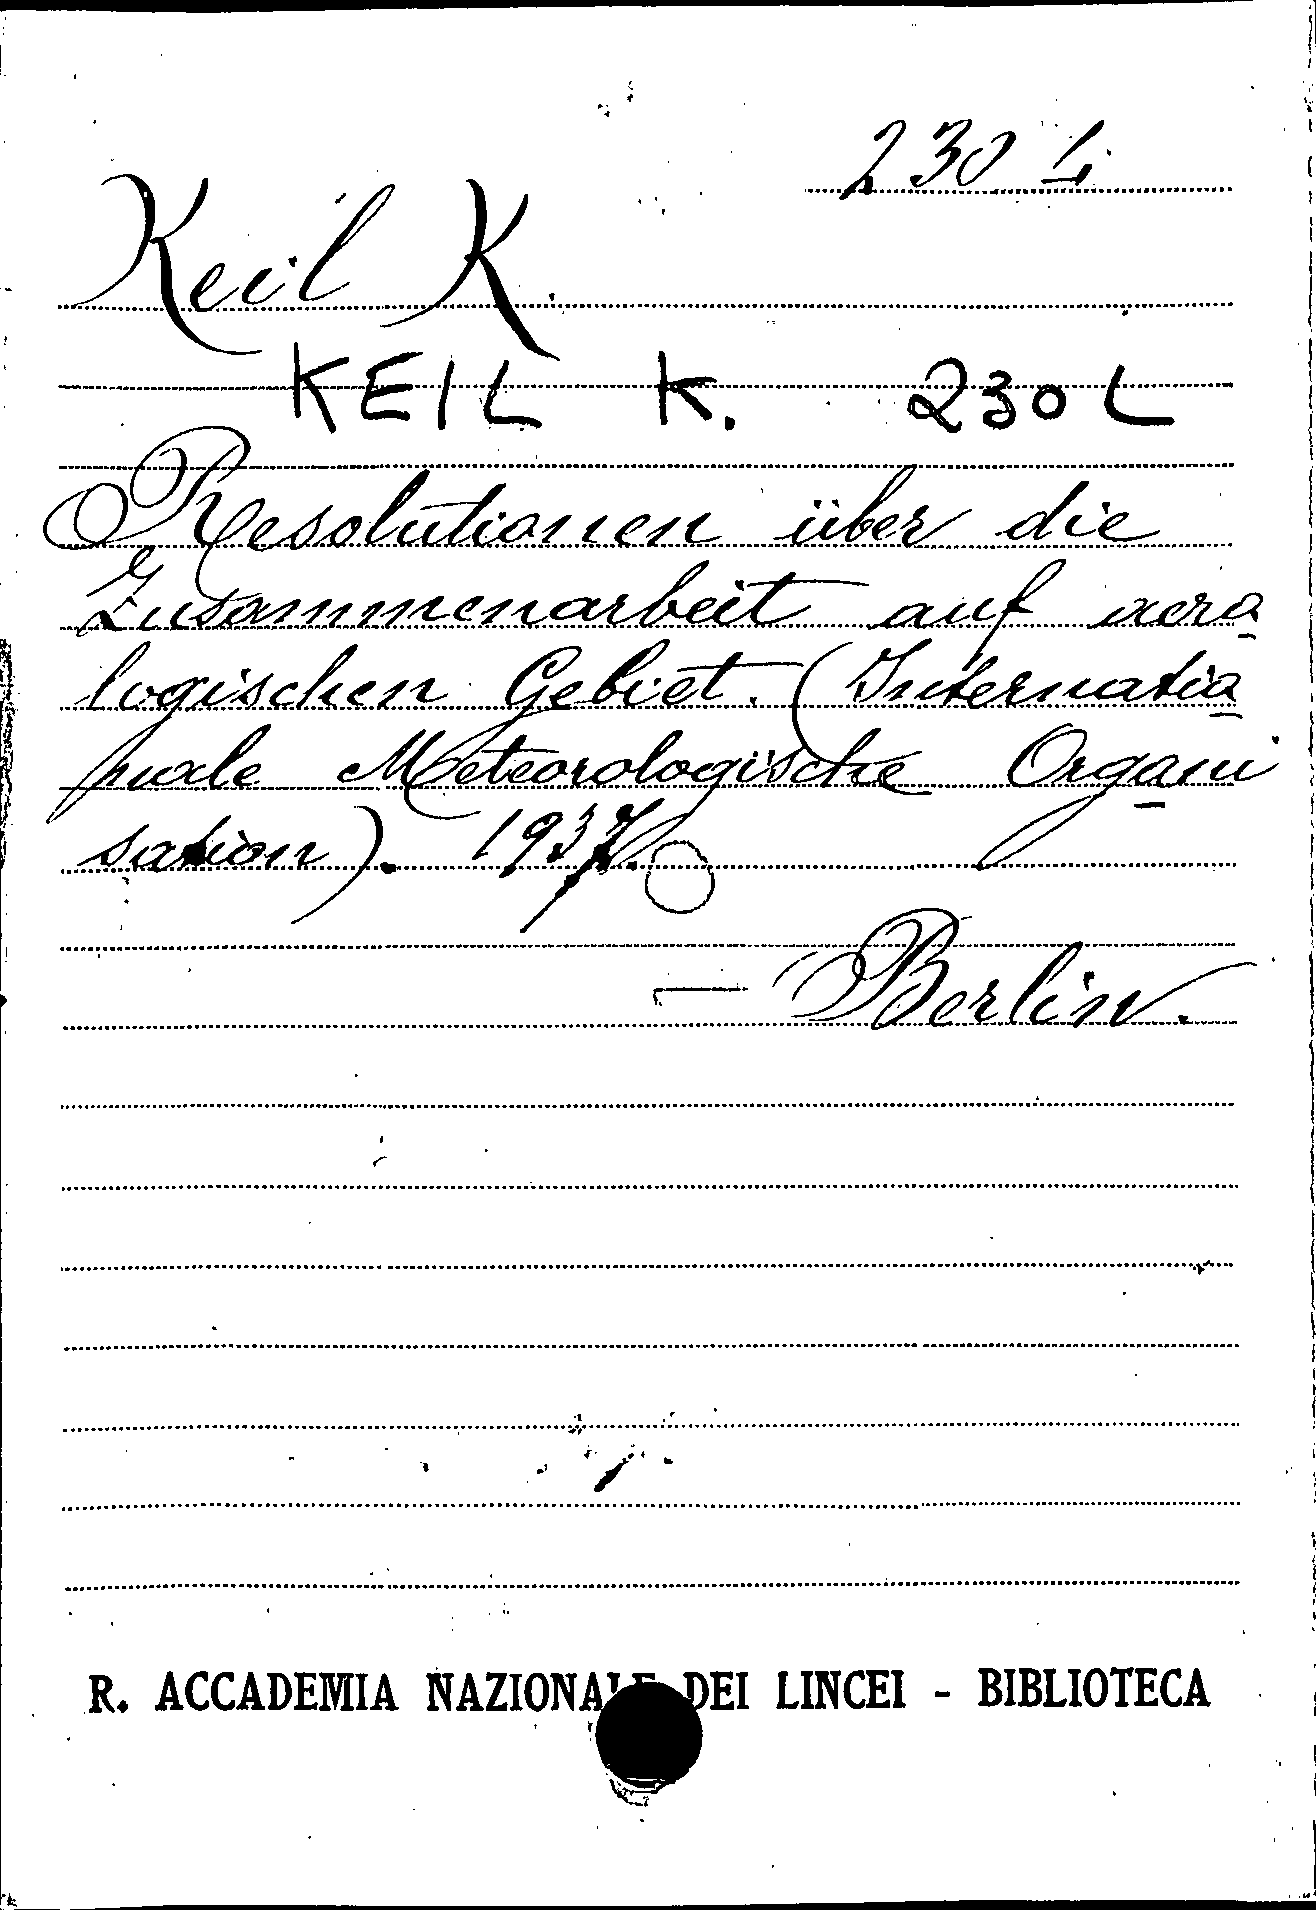 230 L
Keil K.
KEIL K. 230 L
Resolutionen über die
Zusammenarbeit auf aero
logischen Gebiet. (Internatio
nale Meteorologische Organi
sation). 1937.
— Berlin.
R. ACCADEMIA NAZIONALE DEI LINCEI - BIBLIOTECA